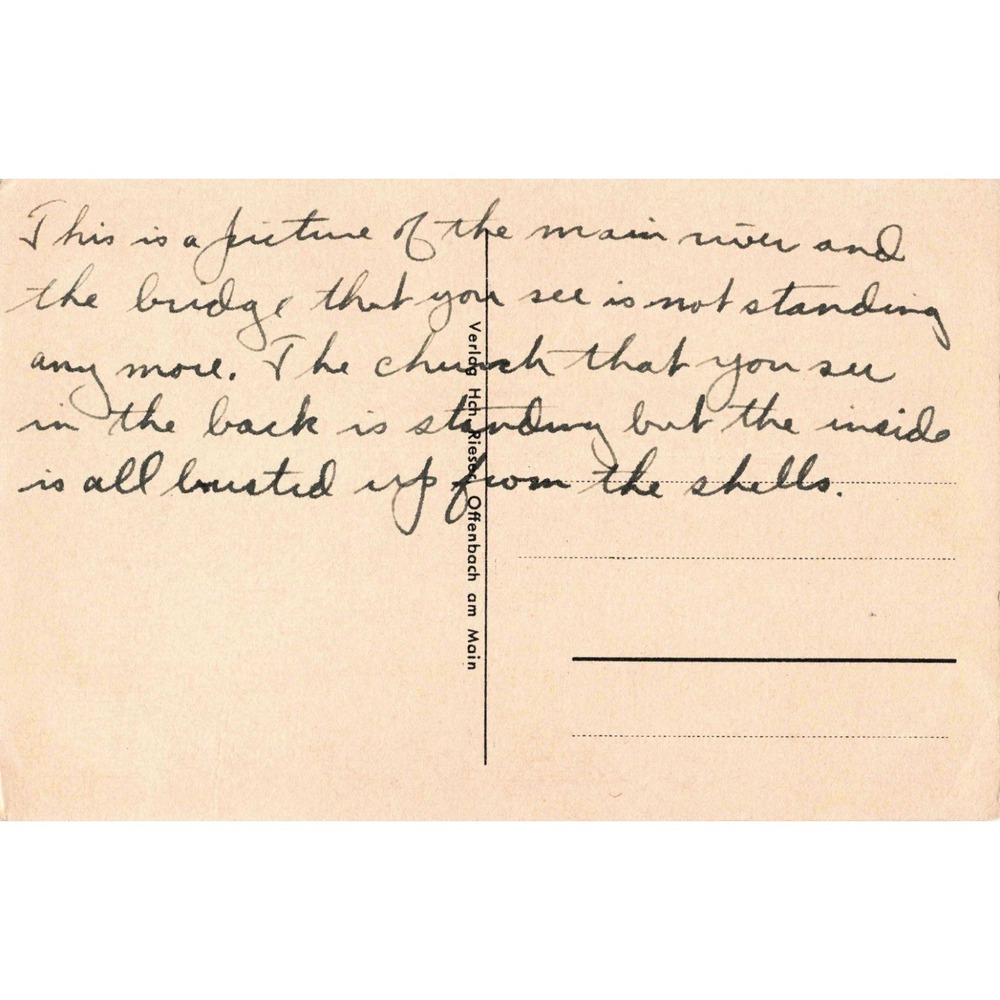 This is a picture of the main river and
the bridge that you see is not standing
any more. The church that you see
in the back is standing but the inside
is all busted up from the shells.
Verlag Hch. Offenbach am Main